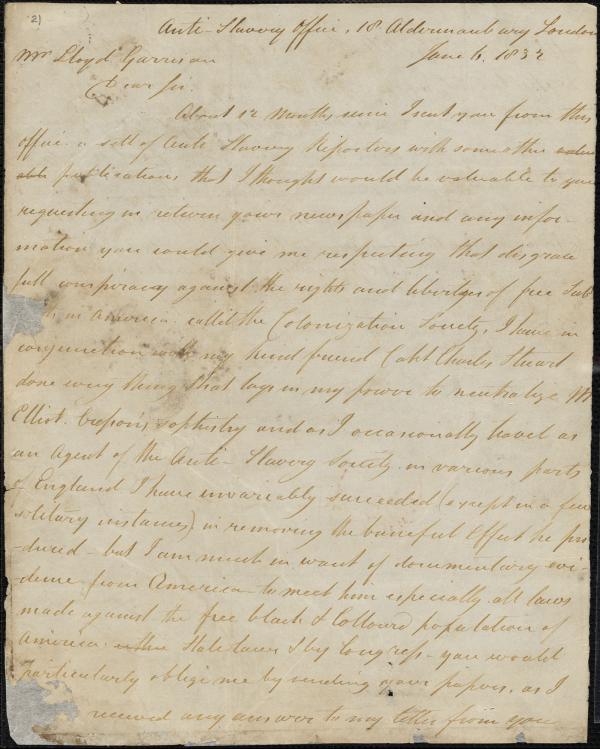 2)
Anti-Slavery Office, 18 Aldermanbury London
June 6. 1832
Mr Lloyd Garrison
Dear Sir.
About 12 Months since I sent you from this
office a sett of Anti Slavery Reporters with some other valu
able publications that I thought would be valuable to you
requesting in return your newspaper and any infor-
mation you could give me respecting that disgrace
full conspiracy against the rights and liberties of free Sub
in America called the Colonization Society, I have in
conjunction with my kind friend Capt Charles Stuard
done every thing that lays in my power to neutralize Mr
Elliot. Cropson's sophistry and as I occasionally travel as
an Agent of the Anti-Slavery Society in various parts
of England I have invariably succeeded (except in a few
solitary instances) in removing the baneful Effect he pro
-duced - but I am much in want of documentary evi-
dence from America to meet him especially all laws
made against the free black & Colloured population of
America State laws & by Congress - you would
particularly oblige me by sending your papers, as I
received any answer to my letter from you